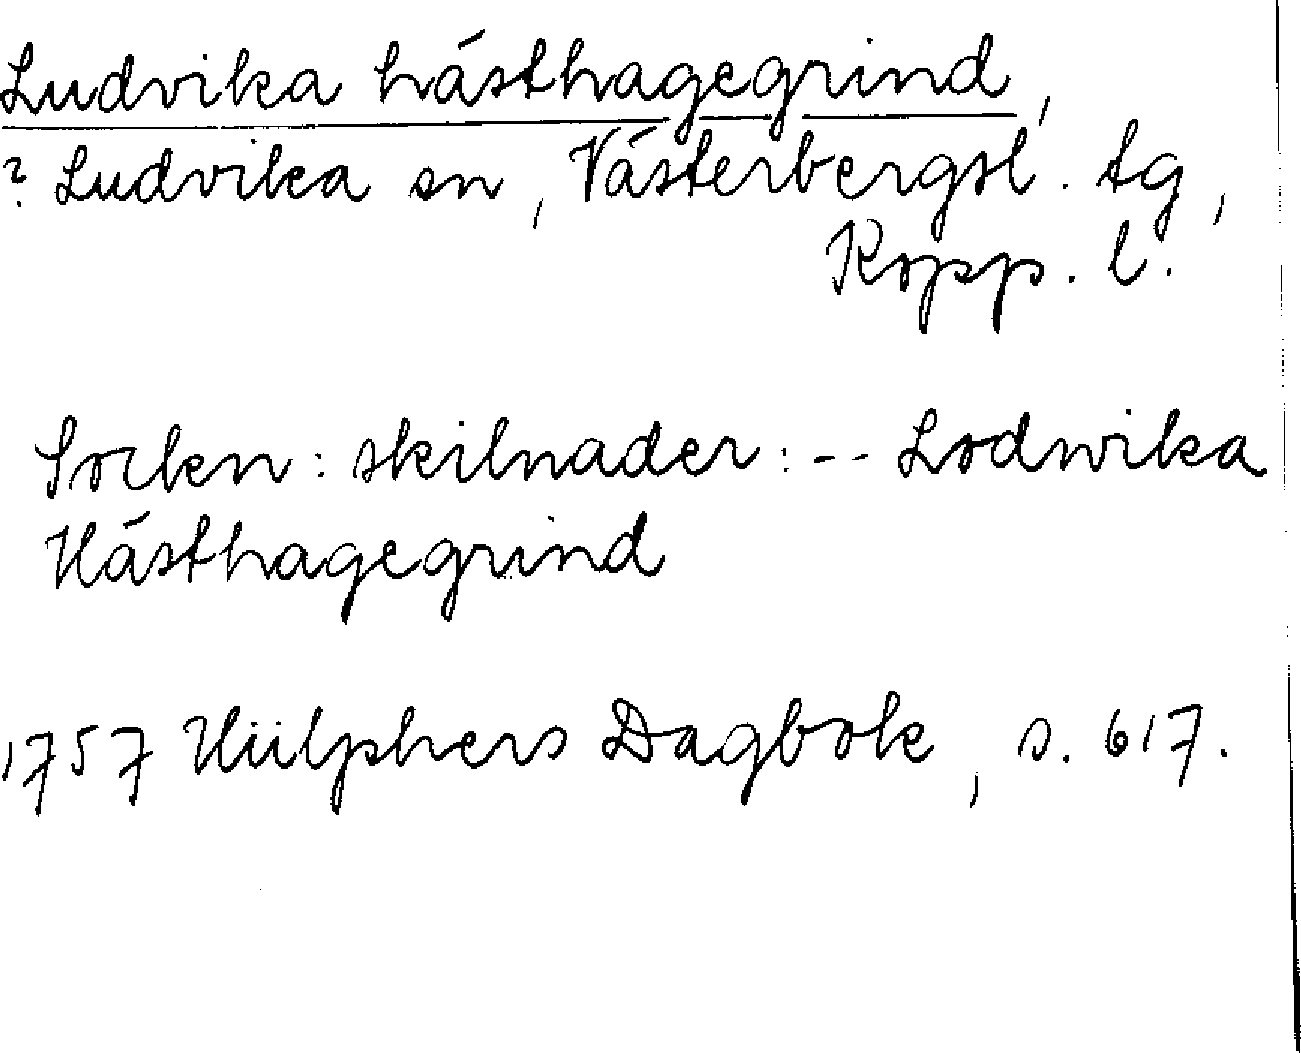 Ludvika hästhagegrind,
? Ludvika sn, Västerbergsl. tg,
Kopp. l.
Socken: skilnader: -- Lodwika
Hästhagegrind
1757 Hülphers Dagbok, s. 617.